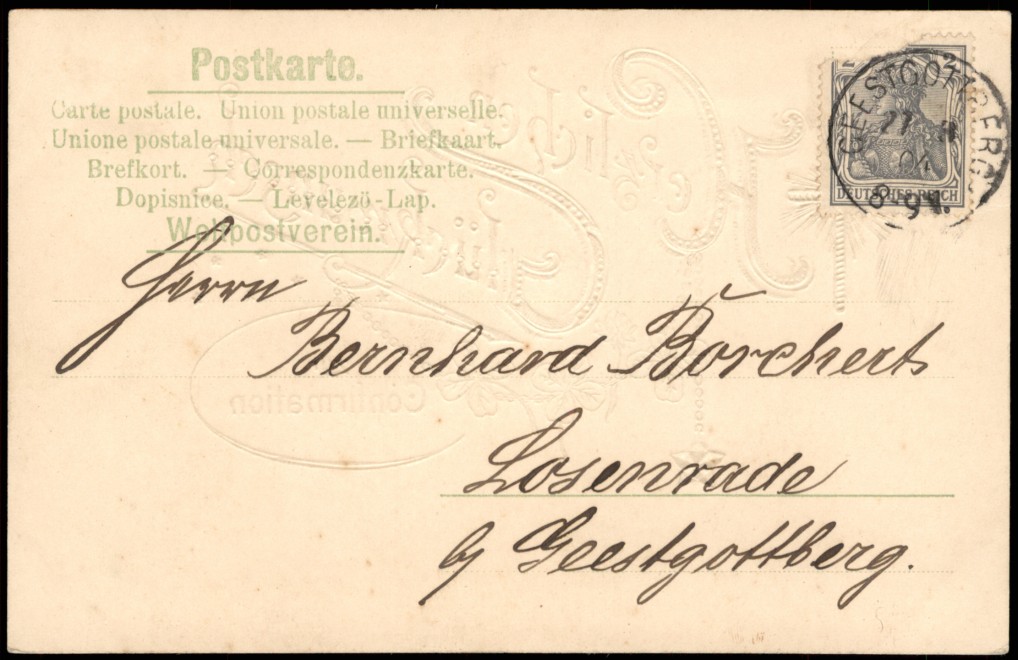 Postkarte.
Carte postale. Union postale universelle.
Unione postale universale. — Briefkaart.
Brefkort. — Correspondenzkarte.
Dopisnice. — Levelező-Lap.
Weltpostverein.
2 2
DEUTSCHES REICH
GEESTGOTTBERG
04
8-9V.
Herrn
Bernhard Borchert
Losenrade
b/ Geestgottberg.
Herzlichen
Glückwunsch
Confirmation